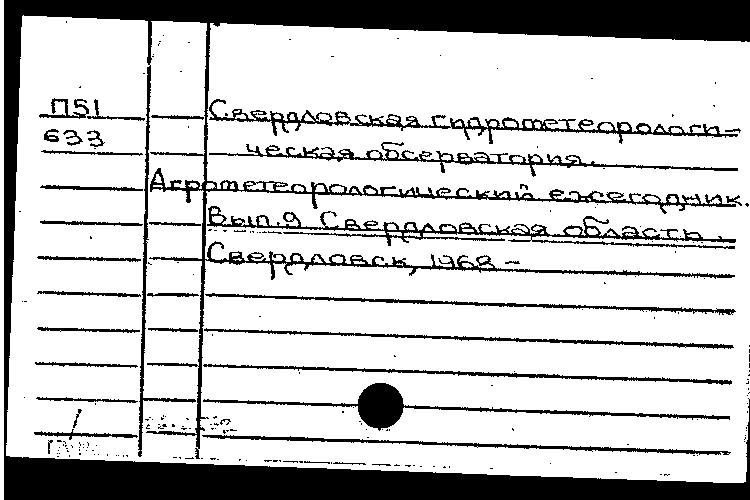 П51
633
Свердловская гидрометеорологи-
ческая обсерватория.
Агрометеорологический ежегодник.
Вып.9 Свердловская область.
Свердловск, 1968 -